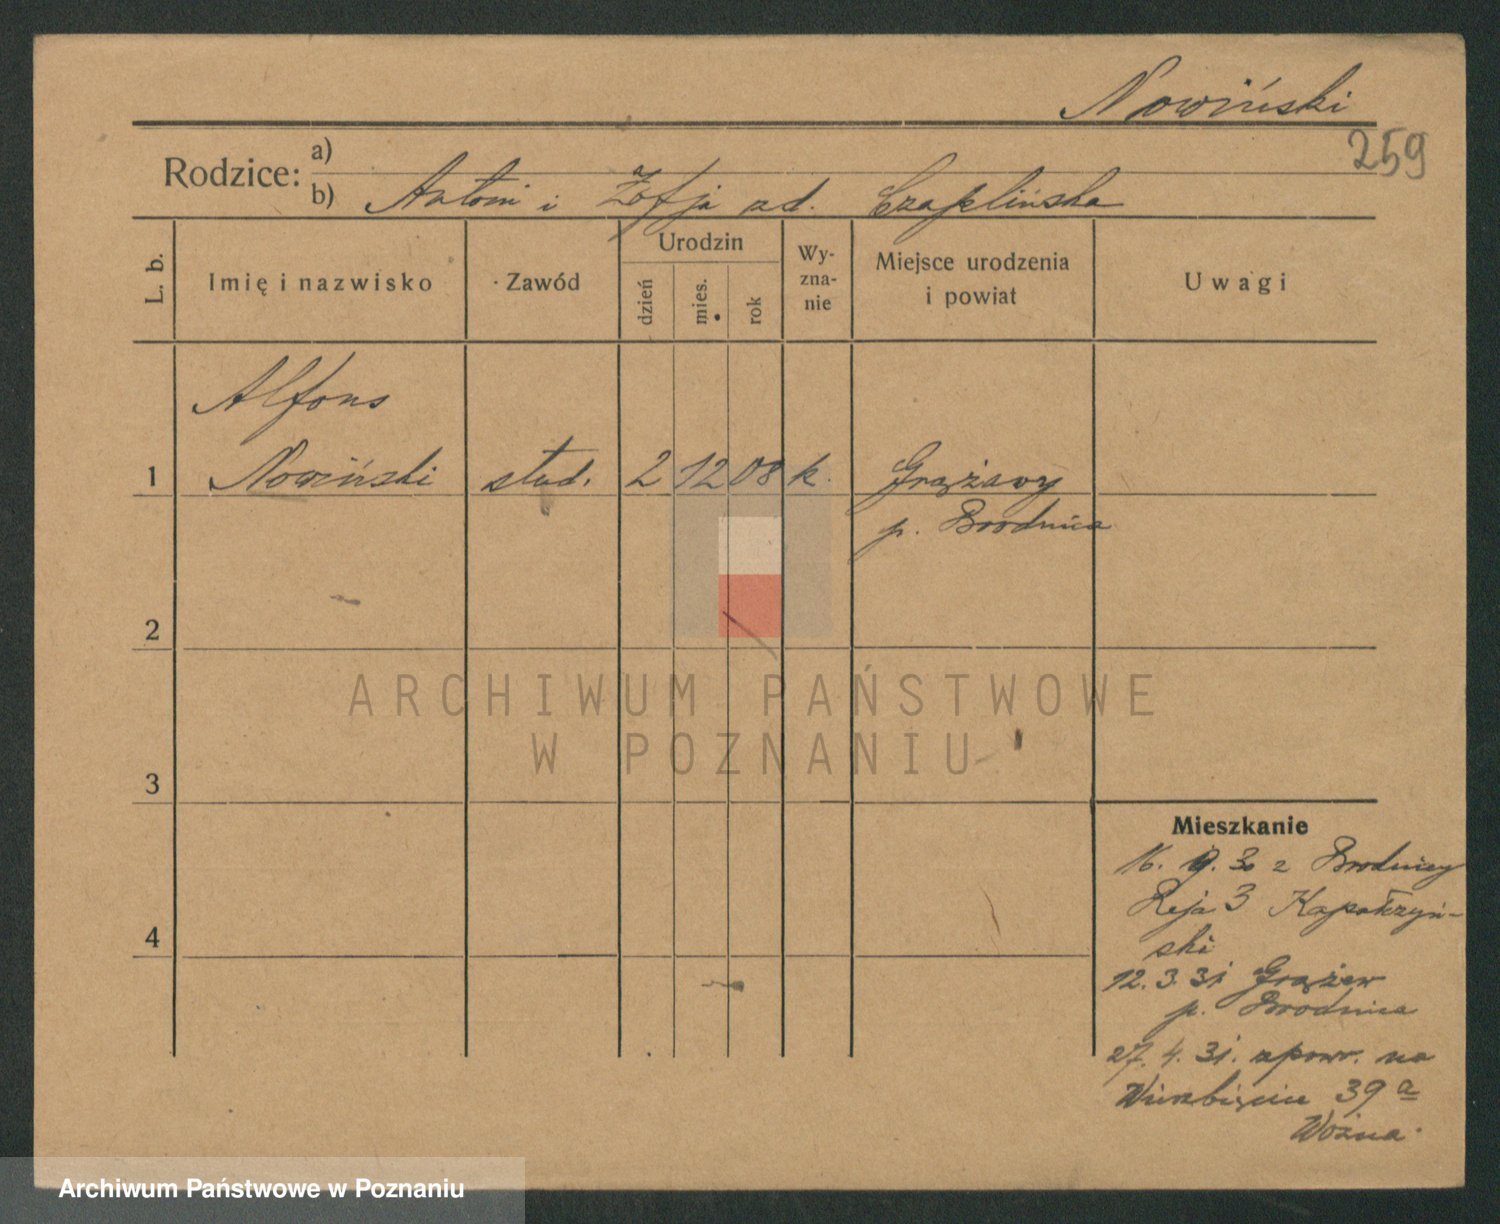 Nowiński
259
Rodzice: a)
b) Antoni i Zofja zd. Czaplińska
L. b.
Imię i nazwisko
Zawód
Urodzin
dzień
mies.
rok
Wy-
zna-
nie
Miejsce urodzenia
i powiat
Uwagi
Alfons
1 Nowiński stud. 2 12 08 k. Grążawy
p. Brodnica
2
ARCHIWUM PAŃSTWOWE
W POZNANIU
3
Mieszkanie
16. 9. 30 z Brodnicy
Reja 3 Kapałczyń-
ski
4
12. 3. 31 Grążaw
p. Brodnica
27. 4. 31. zpowr. na
Wierzbięcice 39 a
Woźna
Archiwum Państwowe w Poznaniu